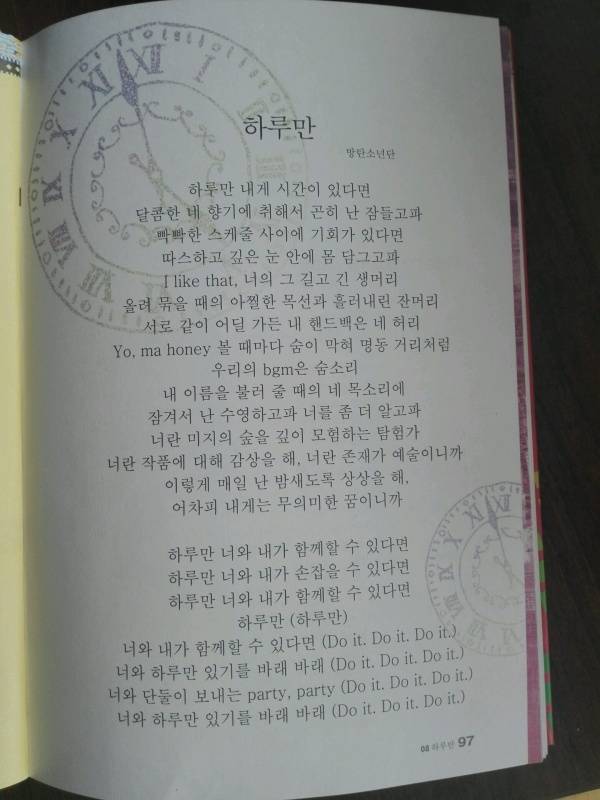 하루만
방탄소년단
하루만 내게 시간이 있다면
달콤한 네 향기에 취해서 곤히 난 잠들고파
빡빡한 스케줄 사이에 기회가 있다면
따스하고 깊은 눈 안에 몸 담그고파
I like that, 너의 그 길고 긴 생머리
올려 묶을 때의 아찔한 목선과 흘러내린 잔머리
서로 같이 어딜 가든 내 핸드백은 네 허리
Yo, ma honey 볼 때마다 숨이 막혀 명동 거리처럼
우리의 bgm은 숨소리
내 이름을 불러 줄 때의 네 목소리에
잠겨서 난 수영하고파 너를 좀 더 알고파
너란 미지의 숲을 깊이 모험하는 탐험가
너란 작품에 대해 감상을 해, 너란 존재가 예술이니까
이렇게 매일 난 밤새도록 상상을 해,
어차피 내게는 무의미한 꿈이니까
하루만 너와 내가 함께할 수 있다면
하루만 너와 내가 손잡을 수 있다면
하루만 너와 내가 함께할 수 있다면
하루만 (하루만)
너와 내가 함께할 수 있다면 (Do it. Do it. Do it.)
너와 하루만 있기를 바래 바래 (Do it. Do it. Do it.)
너와 단둘이 보내는 party, party (Do it. Do it. Do it.)
너와 하루만 있기를 바래 바래 (Do it. Do it. Do it.)
08 하루만 97